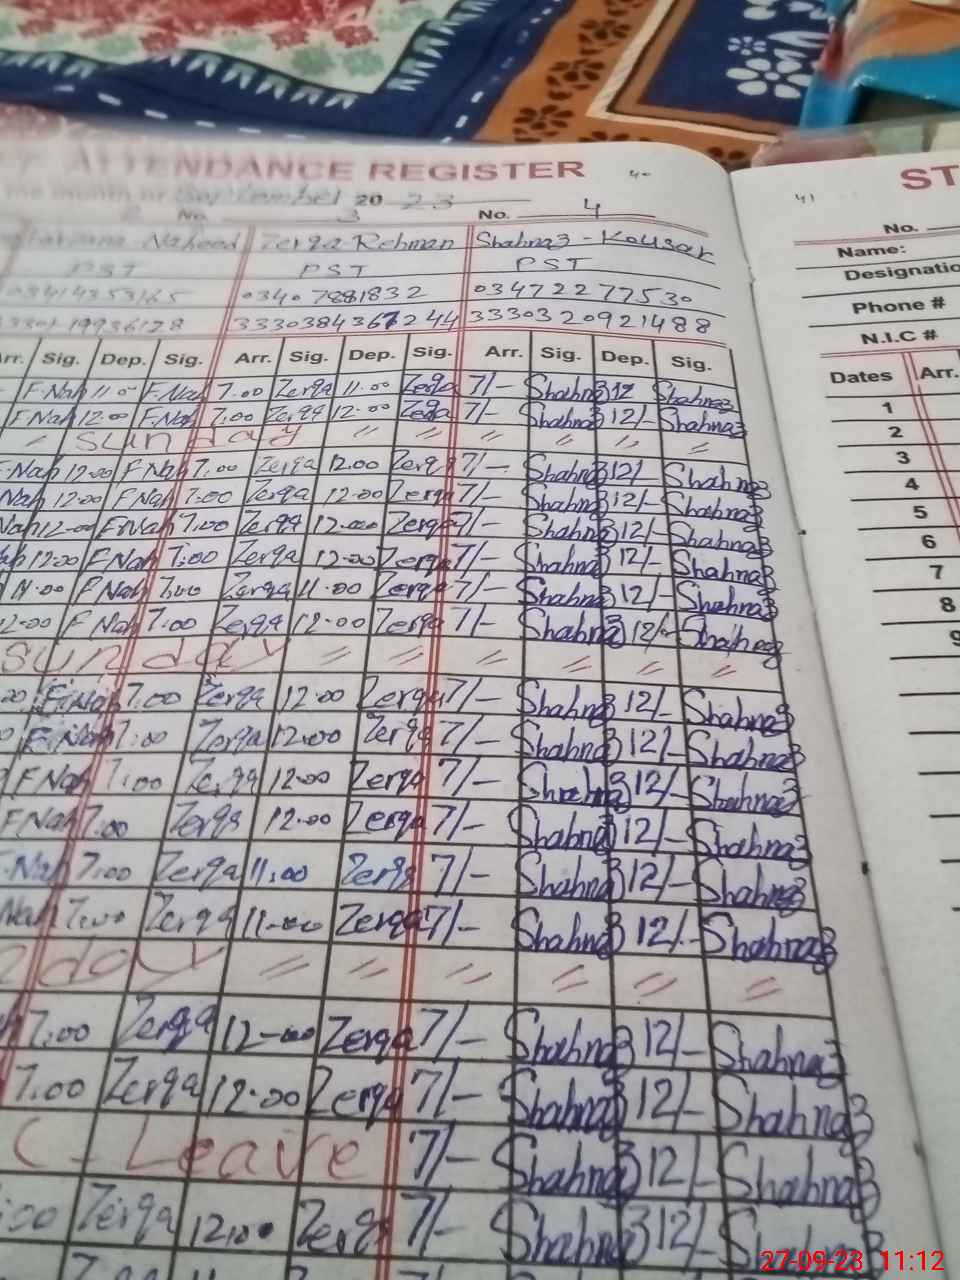 ATTENDANCE REGISTER
40
month of September 20 23
2 No. 3 No. 4
Naheed Zerqa Rehman Shahnaz - Kousar
PST PST PST
03414353165 0340 7881832 03472277530
19936128 3330384367244 3330320921488
Arr. Sig. Dep. Sig. Arr. Sig. Dep. Sig. Arr. Sig. Dep. Sig.
F.Nah 11.00 F.Nah 7.00 Zerqa 11.00 Zerqa 7/- Shahnaz 12 Shahnaz
F.Nah 12.00 F.Nah 7.00 Zerqa 12.00 Zerqa 7/- Shahnaz 12/- Shahnaz
Sunday
F.Nah 12.00 F.Nah 7.00 Zerqa 12.00 Zerqa 7/- Shahnaz 12/- Shahnaz
Nah 12.00 F.Nah 7.00 Zerqa 12.00 Zerqa 7/- Shahnaz 12/- Shahnaz
Nah 12.00 F.Nah 7.00 Zerqa 12.00 Zerqa 7/- Shahnaz 12/- Shahnaz
12.00 F.Nah 7.00 Zerqa 12.00 Zerqa 7/- Shahnaz 12/- Shahnaz
11.00 F.Nah 7.00 Zerqa 11.00 Zerqa 7/- Shahnaz 12/- Shahnaz
12.00 F.Nah 7.00 Zerqa 12.00 Zerqa 7/- Shahnaz 12/- Shahnaz
Sunday
F.Nah 7.00 Zerqa 12.00 Zerqa 7/- Shahnaz 12/- Shahnaz
F.Nah 7.00 Zerqa 12.00 Zerqa 7/- Shahnaz 12/- Shahnaz
F.Nah 7.00 Zerqa 12.00 Zerqa 7/- Shahnaz 12/- Shahnaz
F.Nah 7.00 Zerqa 12.00 Zerqa 7/- Shahnaz 12/- Shahnaz
F.Nah 7.00 Zerqa 11.00 Zerqa 7/- Shahnaz 12/- Shahnaz
Nah 7.00 Zerqa 11.00 Zerqa 7/- Shahnaz 12/- Shahnaz
nday
7.00 Zerqa 12.00 Zerqa 7/- Shahnaz 12/- Shahnaz
7.00 Zerqa 12.00 Zerqa 7/- Shahnaz 12/- Shahnaz
C - Leave 7/- Shahnaz 12/- Shahnaz
:00 Zerqa 12.00 Zerqa 7/- Shahnaz 12/- Shahnaz
41
ST
No.
Name:
Designatio
Phone #
N.I.C #
Dates Arr.
1
2
3
4
5
6
7
8
9
27-09-23 11:12